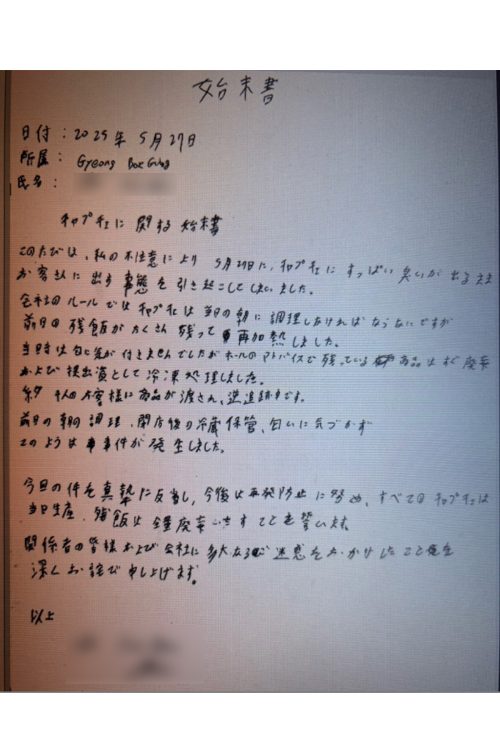 始末書
日付：2025年 5月27日
所属： Gyeong Bok Gung
氏名：
チャプチェに関する始末書
このたびは、私の不注意により 5月27日に、チャプチェにすっぱい臭いが出るまま
お客さんに出す事態を引き起こしてしまいました。
会社のルールではチャプチェは当日の朝に調理しなければならないですが
前日の残飯がたくさん残って再加熱しました。
当時は匂に気が付きませんでしたがホールのアドバイスで残っている商品はすぐ廃棄
および提出資として冷凍処理しました。
約 4人のお客様に商品が渡され、逆追跡中です。
前日の朝の調理、閉店後の冷蔵保管、匂いに気づかず
このような事件が発生しました。
今日の件を真摯に反省し、今後は再発防止に努め、すべてのチャプチェは
当日生産、残飯は全量廃棄いたすことを誓います。
関係者の皆様および会社に多大なるご迷惑をおかけしたこと
深くお詫び申し上げます。
以上